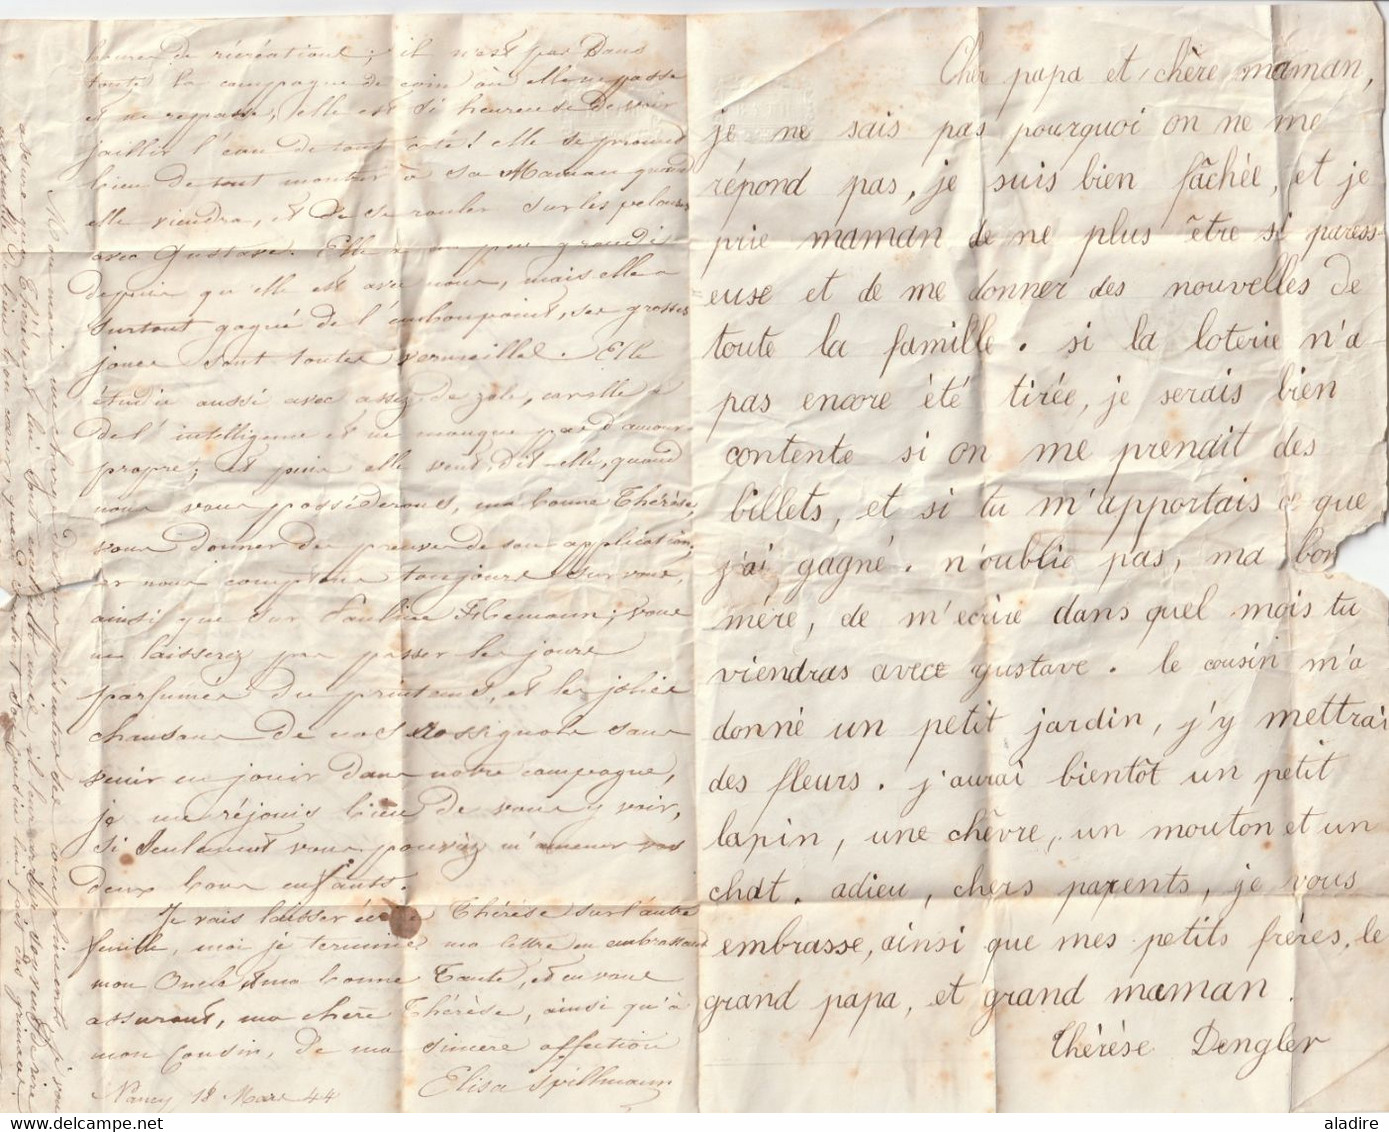 heures de récréations; il n'est pas dans
toute la campagne de coin où elle ne passe
et ne repasse, elle est si heureuse de voir
jaillir l'eau de tout côté! elle se promet
bien de tout montrer à sa Maman quand
elle viendra, et de se rouler sur les pelouses
avec Gustave. Elle a un peu grandi
depuis qu'elle est avec nous, mais elle a
surtout gagné de l'embonpoint, ses grosses
joues sont toutes vermeilles. Elle
étudie aussi avec assez de zèle, car elle a
de l'intelligence et ne manque pas d'amour
propre; et puis elle veut, dit-elle, quand
nous vous possèderons, ma bonne Thérèse,
vous donner des preuves de son application,
nous comptons toujours sur vous,
ainsi que sur Pauline; vous
ne laisserez pas passer les jours
parfumés du printems, et les jolies
chansons de nos Rossignols sans
venir en jouir dans notre campagne,
je me réjouis bien de vous y voir,
si seulement vous pouviez m'amener vos
deux bons enfants.
Je vais laisser écrire Thérèse sur l'autre
feuille, moi je termine ma lettre en embrassant
mon Oncle et ma bonne Tante, et en vous
assurant, ma chère Thérèse, ainsi qu'à
mon Cousin, de ma sincère affection
Elisa Spillmann
Nancy 18 Mars 44
Mon mari me charge de vous présenter ses compliments, je vous
assure que Thérèse
Cher papa et chère maman,
je ne sais pas pourquoi on ne me
répond pas, je suis bien fâchée, et je
prie maman de ne plus être si paress-
euse et de me donner des nouvelles de
toute la famille. si la loterie n'a-
pas encore été tirée, je serais bien
contente si on me prenait des
billets, et si tu m'apportais ce que
j'ai gagné. n'oublie pas, ma bon
mère, de m'ecrire dans quel mois tu
viendras avece gustave. le cousin m'a
donné un petit jardin, j'y mettrai
des fleurs. j'aurai bientôt un petit
lapin, une chèvre, un mouton et un
chat. adieu, chers parents, je vous
embrasse, ainsi que mes petits frères, le
grand papa, et grand maman.
thérèse Dengler
aladire